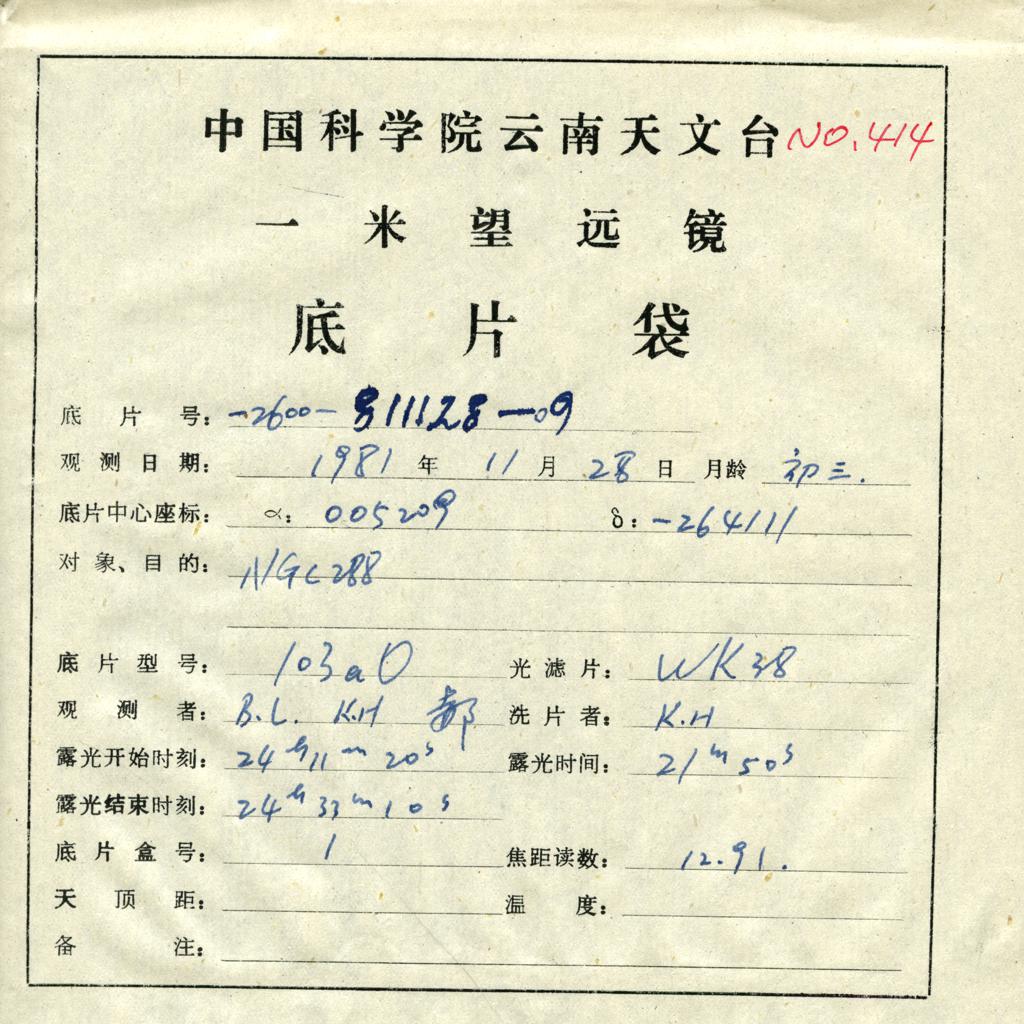 中国科学院云南天文台 NO.414
一米望远镜
底片袋
底片号: -2600-811128-09
观测日期: 1981年 11月 28日 月龄 初三.
底片中心座标: α: 005209 δ: -264111
对象、目的: NGC288
底片型号: 103aO 光滤片: WK38
观测者: B.L. K.H 郝 洗片者: K.H
露光开始时刻: 24h11m20s 露光时间: 21m50s
露光结束时刻: 24h33m10s
底片盒号: 1 焦距读数: 12.91.
天顶距: 温度:
备注: